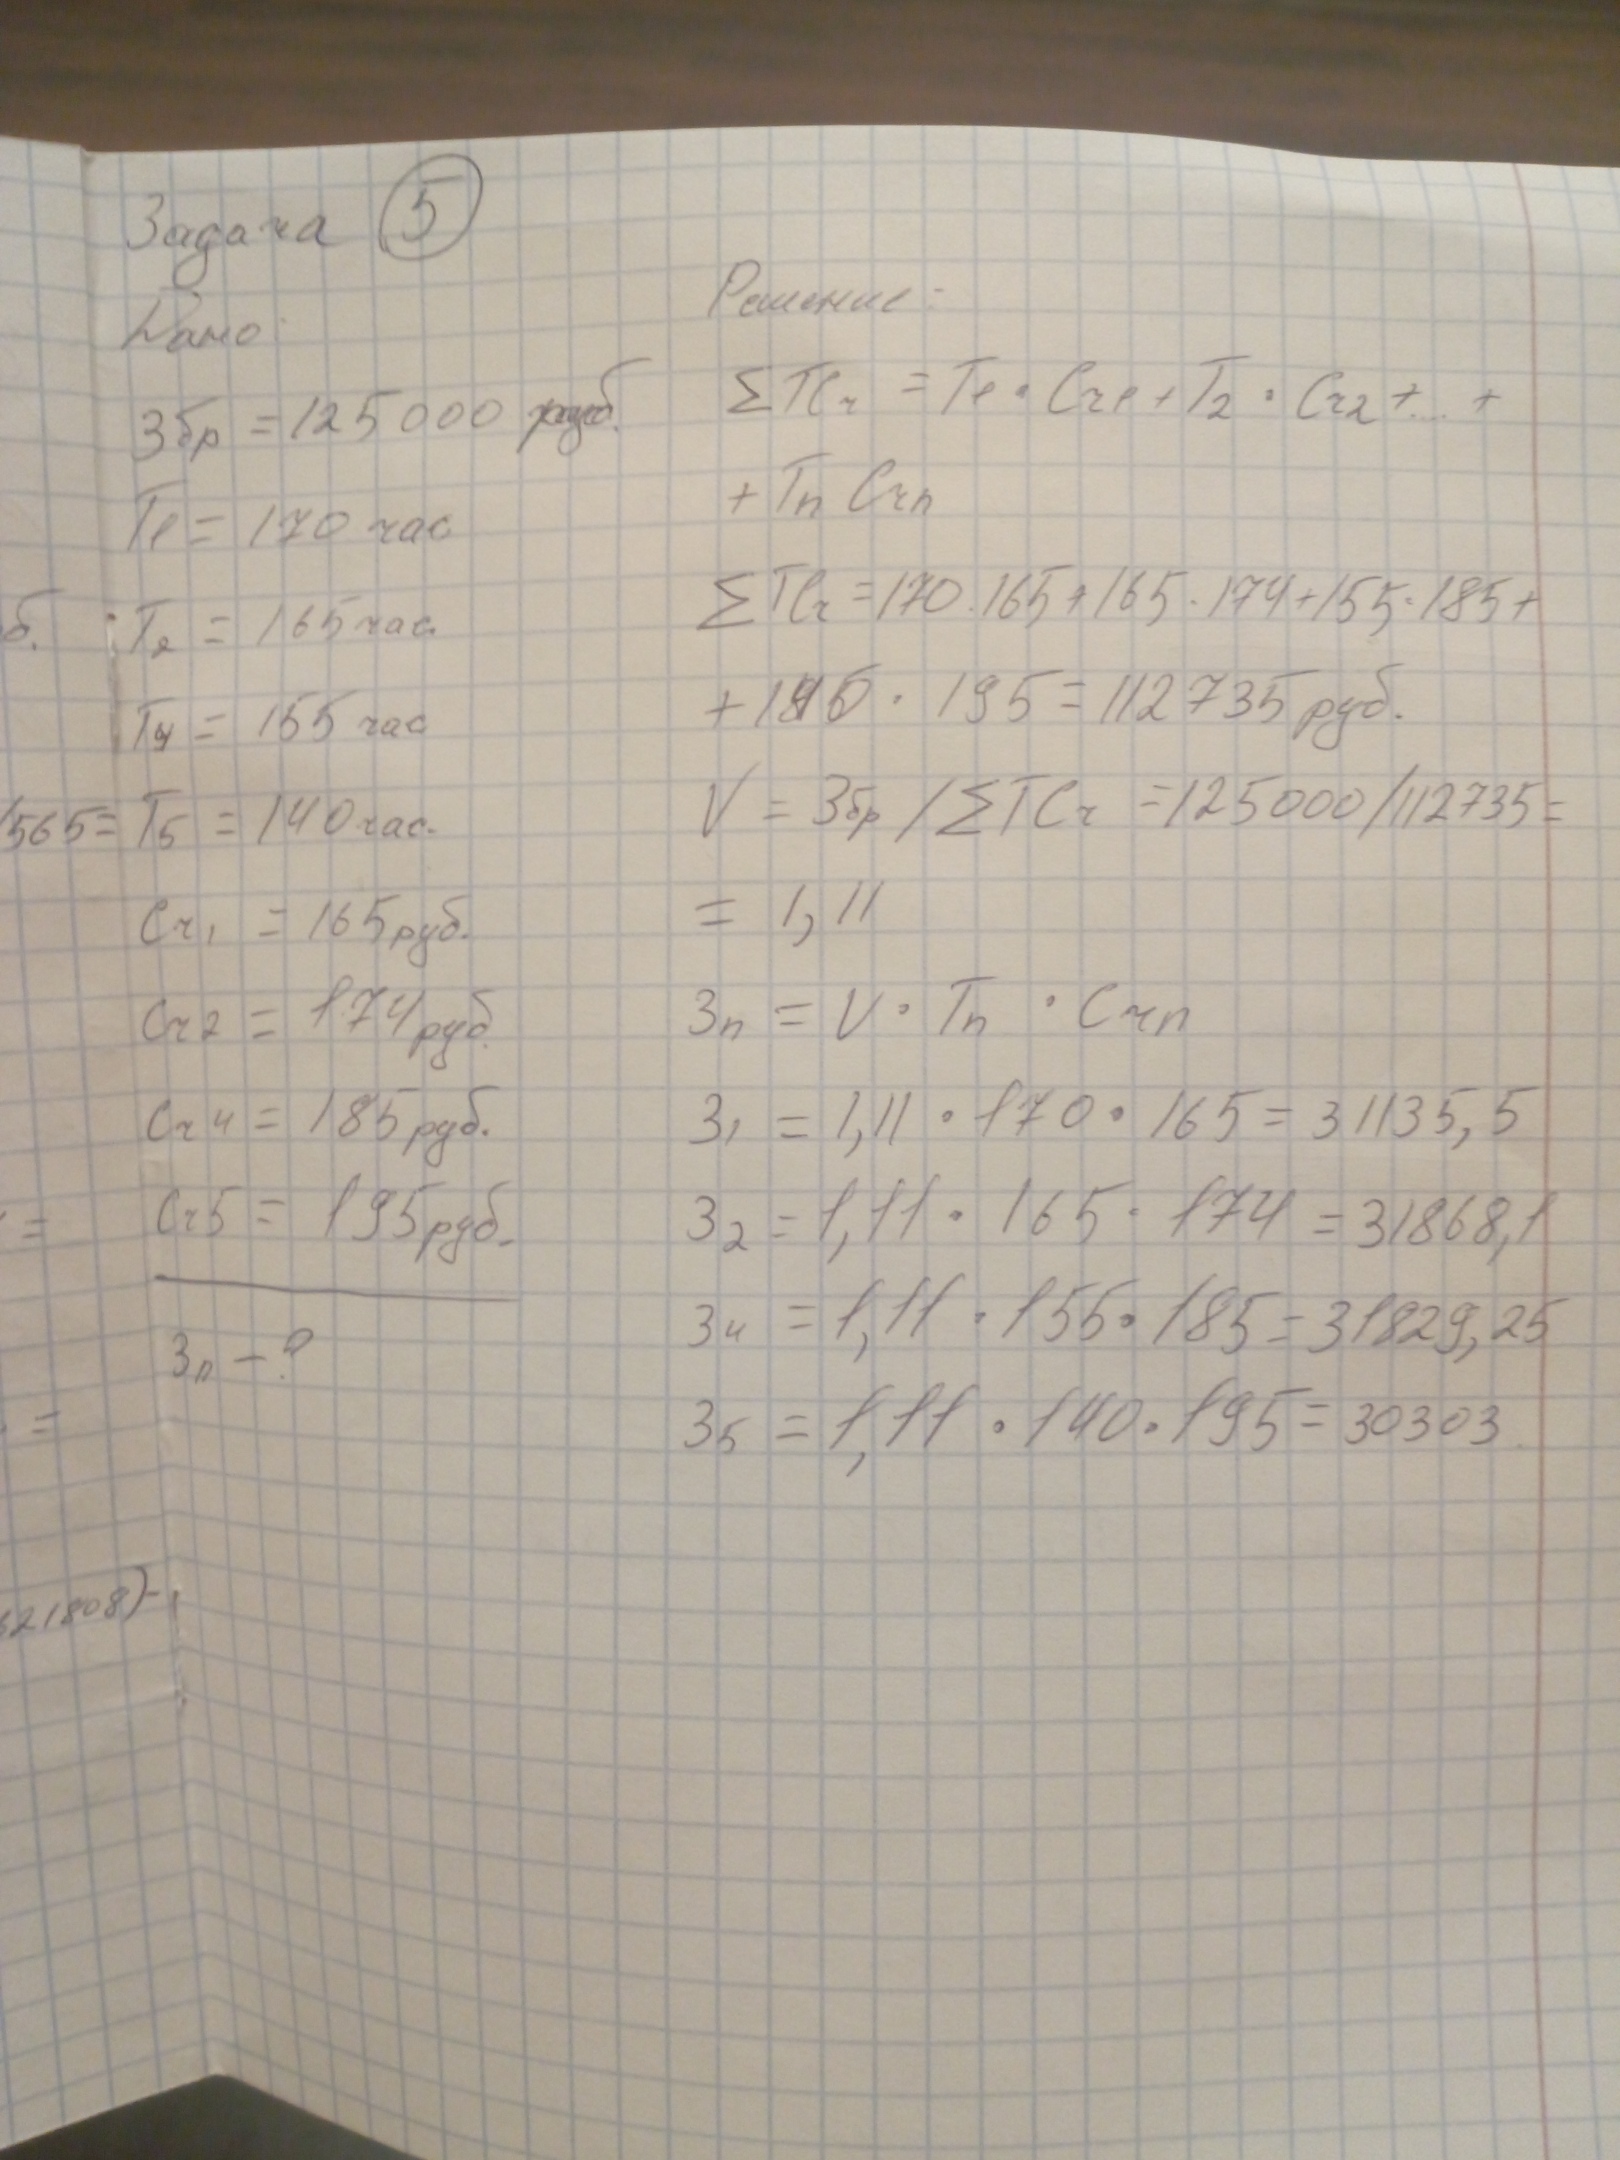 Задача 5
Дано:
Збр = 125000 руб.
T1 = 170 час
T2 = 165 час.
T4 = 155 час
T5 = 140 час.
Сч1 = 165 руб.
Сч2 = 174 руб.
Сч4 = 185 руб.
Сч5 = 195 руб.
Зп - ?
Решение:
ΣТСч = T1 · Сч1 + T2 · Сч2 + ... +
+ Tп Счп
ΣТСч = 170 · 165 + 165 · 174 + 155 · 185 +
+ 140 · 195 = 112735 руб.
V = Збр / ΣТСч = 125000 / 112735 =
= 1,11
Зп = V · Тп · Счп
З1 = 1,11 · 170 · 165 = 31135,5
З2 = 1,11 · 165 · 174 = 31868,1
З4 = 1,11 · 155 · 185 = 31829,25
З5 = 1,11 · 140 · 195 = 30303
б.
/565=
=
=
621808)-